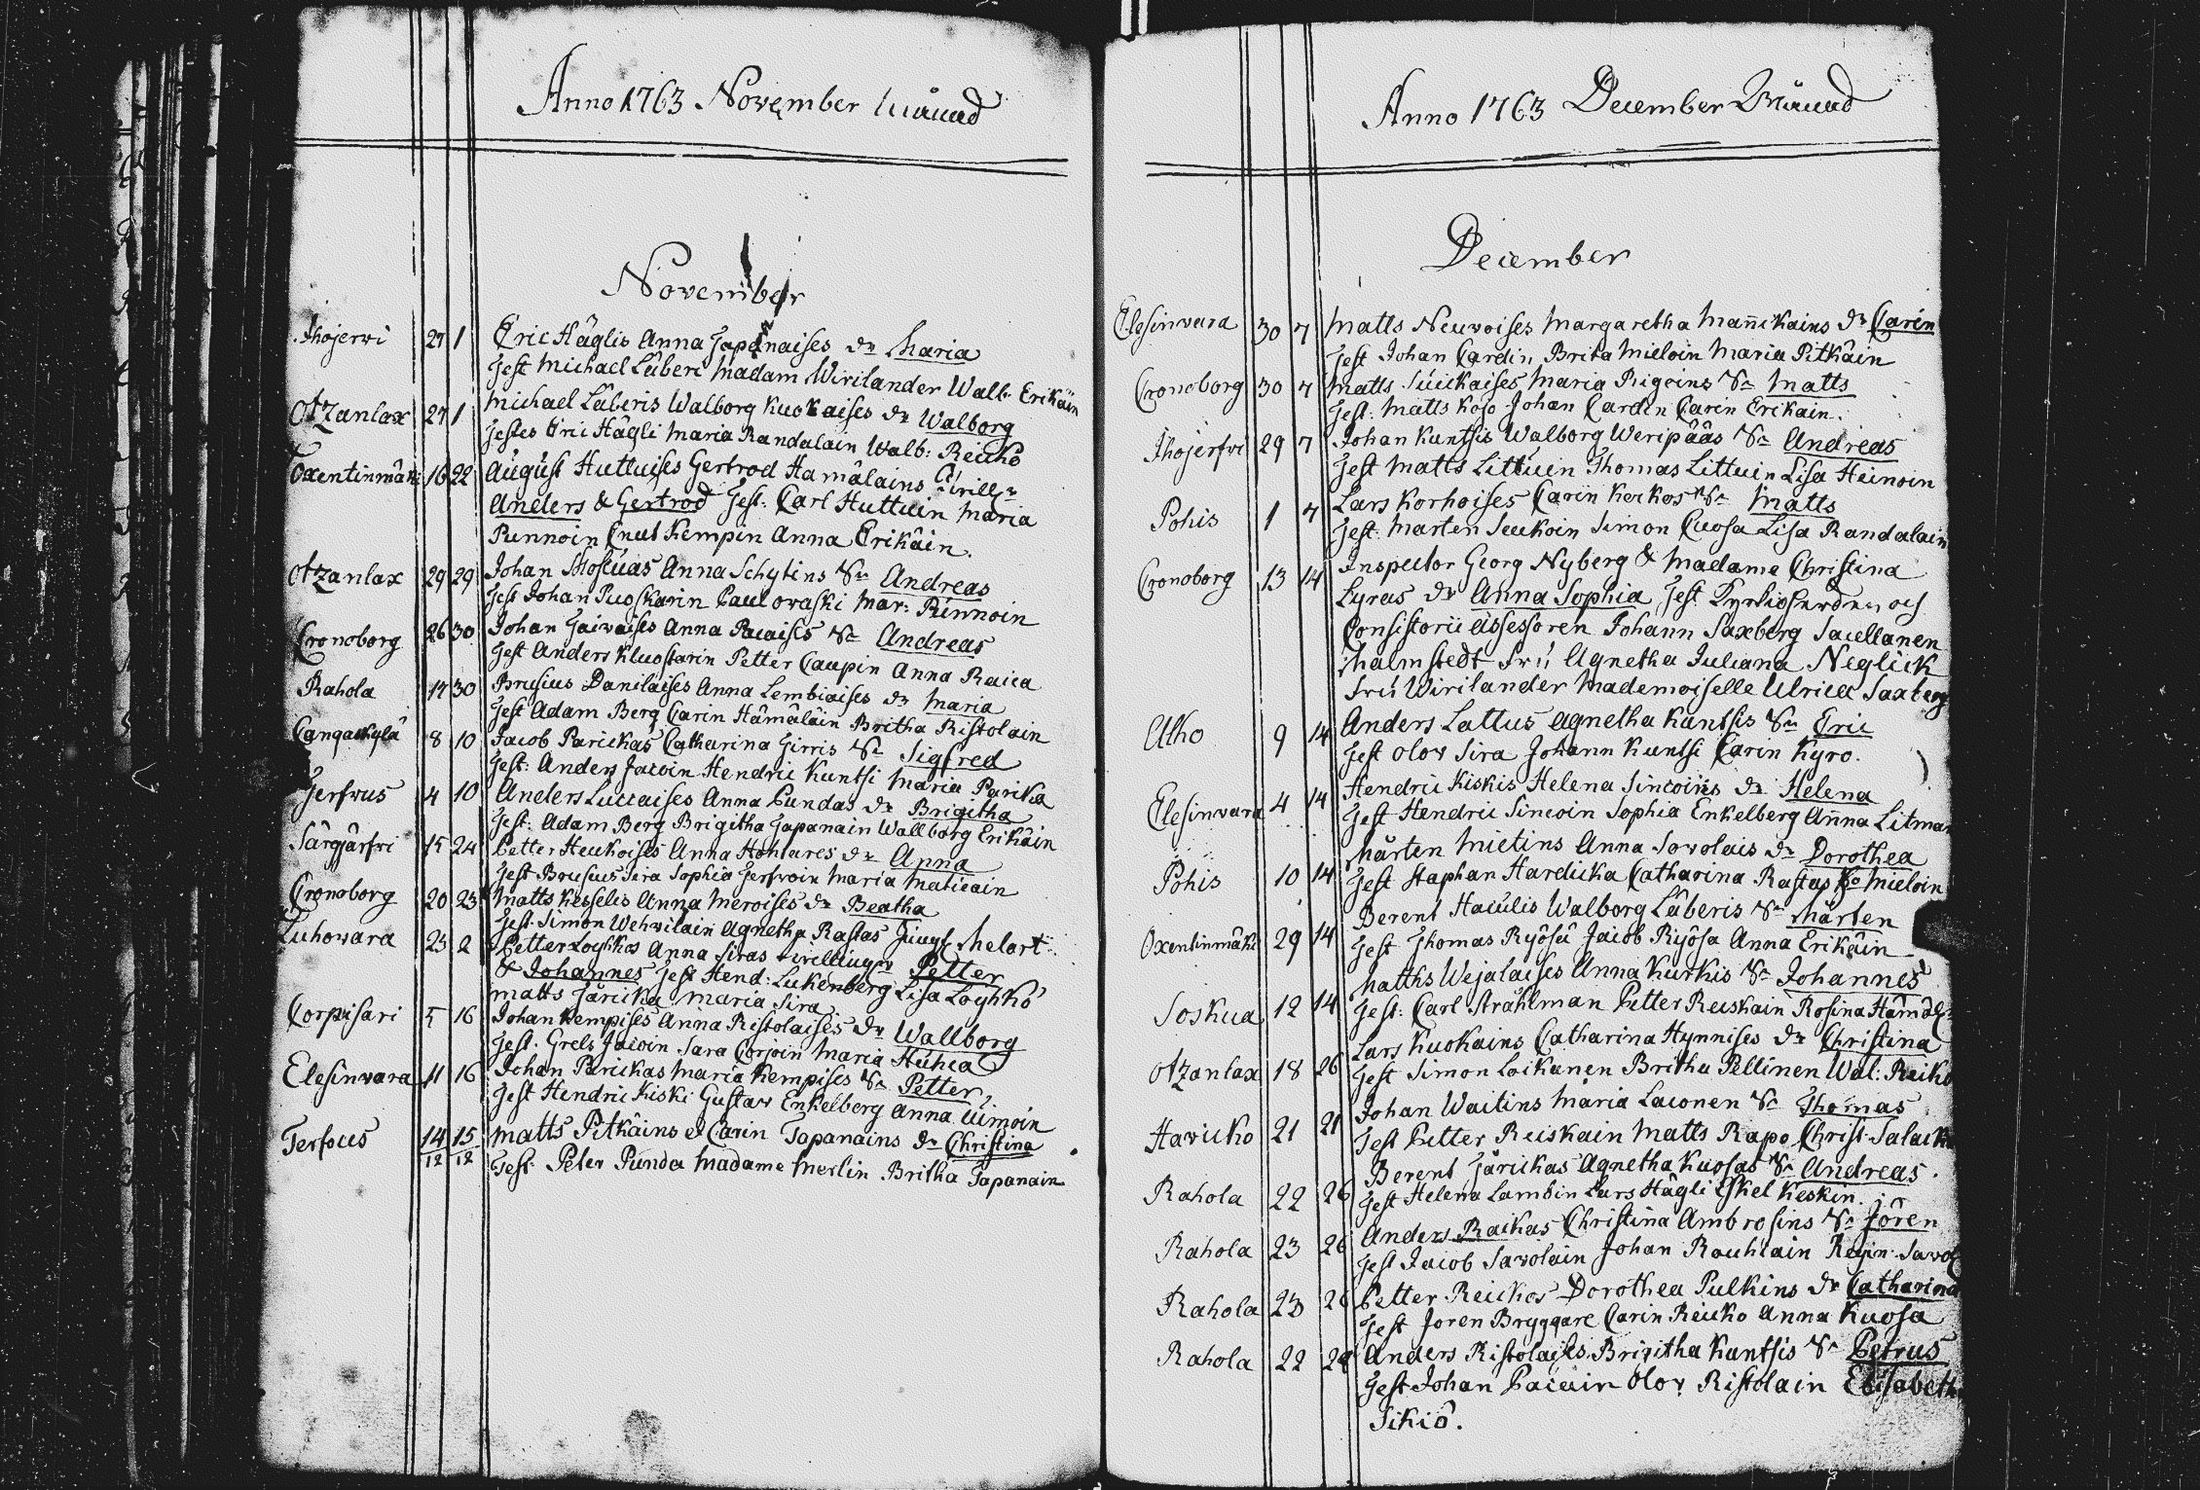 Anno 1763 November Månad
November
Ihojervi 27 1 Eric Häglis Anna Japanaises dr Maria
Test Michael Lâberi Madam Wirilander Walb. Erikäin
Otzanlax 27 1 Michael Lâberis Walborg Kuokaises dr Walborg
Testes Eric Hägli Maria Randalain Walb: Reicko
Oxentinmäki 16 22 August Huttuises Gertrod Hamâlains
Anders & Gertrod Test. Carl Huttuin Maria
Rinnoin Cnut Kempin Anna Erikäin.
Otzanlax 29 29 Johan Anna Schytins Sn Andreas
Test Johan Puoskarin Paulowaski Mar: Rinnoin
Cronoborg 26 30 Johan Jaiwaises Anna Pacaises Sn Andreas
Test Anders Kluostarin Petter Caupin Anna Raica
Rahola 17 30 Brusius Danilaises Anna Lembiaises dr Maria
Test Adam Berg Carin Hämäläin Britha Ristolain
Cangaskylä 8 10 Jacob Parickas Catharina Girris Sn Sigfred
Test: Anders Jacoin Hendric Kuntsi Maria Parika
Jerfwus 4 10 Anders Luccaises Anna Pundas dr Brigitha
Test: Adam Berg Brigitha Japanain Wallborg Erikäin
Särgjärfvi 15 24 Petter Heukoises Anna Hohtares dr Anna
Test Brusius Sira Sophia Jerfwoin Maria Maticain
Cronoborg 20 23 Matts Kesselis Anna Meroises dr Beatha
Test. Simon Wehwiläin Agnetha Rastas Jungf. Melart
Luhovara 23 2 Petter Loyhkos Anna Siras Petter
& Johannes Test Hend: Lukenberg Lisa Loyhkö
Matts Järicka Maria Sira
Corpisari 5 16 Johan Kempises Anna Ristolaises dr Wallborg
Test. Grels Jacoin Sara Corjoin Maria Huhca
Elesinvara 11 16 Johan Parickas Maria Kempises Sn Petter
Test Hendric Kiski Gustav Enkelberg Anna Uimoin
Terfvus 14/12 15/12 Matts Pitkäins & Carin Tapanains dr Christina
Test. Peter Punda Madame Merlin Britha Tapanain
Anno 1763 December Månad
December
Elesinvara 30 7 Matts Neuvoises Margaretha Mannikains dr Carin
Test Johan Cardin Brita Mieloin Maria Pitkäin
Cronoborg 30 7 Matts Suickaises Maria Rigoins Sn Matts
Test. Matts Koso Johan Cardin Carin Erikain.
Ihojerfvi 29 7 Johan Kuntsis Walborg Weripääs Sn Andreas
Test Matts Littuin Thomas Littuin Lisa Heinoin
Pohis 1 7 Lars Korhoises Carin Korkos Sn Matts
Test. Marten Seukoin Simon Cuosa Lisa Randalain
Cronoborg 13 14 Inspector Georg Nyberg & Madame Christina
Lyras dr Anna Sophia Test. Kyrkioherden och
Consistorii Assessoren Johann Saxberg Sacellanen
Malmstedt Fru Agnetha Juliana Neglick
Fru Wirilander Mademoiselle Ulrica Saxberg
Alho 9 14 Anders Lattus Agnetha Kuntsis Sn Eric
Test Olov Sira Johann Kuntsi Carin Kyro.
Elesinvara 4 14 Hendric Kiskis Helena Sincoins dr Helena
Test Hendric Sincoin Sophia Enkelberg Anna Litman
Pohis 10 14 Mårten Mietins Anna Sovolais dr Dorothea
Test Staphan Hardicka Catharina Rastas Mieloin
Oxentinmäki 29 14 Berent Hacülis Walborg Lâberis Sn Mårten
Test Thomas Ryösä Jacob Riyösa Anna Erikäin
Soskua 12 14 Matths Wejalaises Anna Kurkis Sn Johannes
Test: Carl Stråhlman Petter Reiskain Rosina
Otzanlax 18 26 Lars Kuokains Catharina Hynnises dr Christina
Test Simon Loikanen Britha Pellinen Wal: Reiko
Haricko 21 21 Johan Waitins Maria Laconen Sn Thomas
Test Petter Reiskain Matts Rapo Christ.
Rahola 22 26 Berent Järickas Agnetha Kuosas Sn Andreas.
Test Helena Lambin Lars Hägli Eskel Keskin.
Rahola 23 26 Anders Raikas Christina Ambrosins Sn Jören
Test Jacob Savolain Johan Rouhiain Regin. Savol
Rahola 23 26 Petter Reickos Dorothea Pulkins dr Catharina
Test Joren Bryggare Carin Reicko Anna Kuosa
Rahola 22 29 Anders Ristolaises Brigitha Kuntsis Sn Petrus
Test Johan Paciain Olov Ristolain Elisabeth
Sikiö.